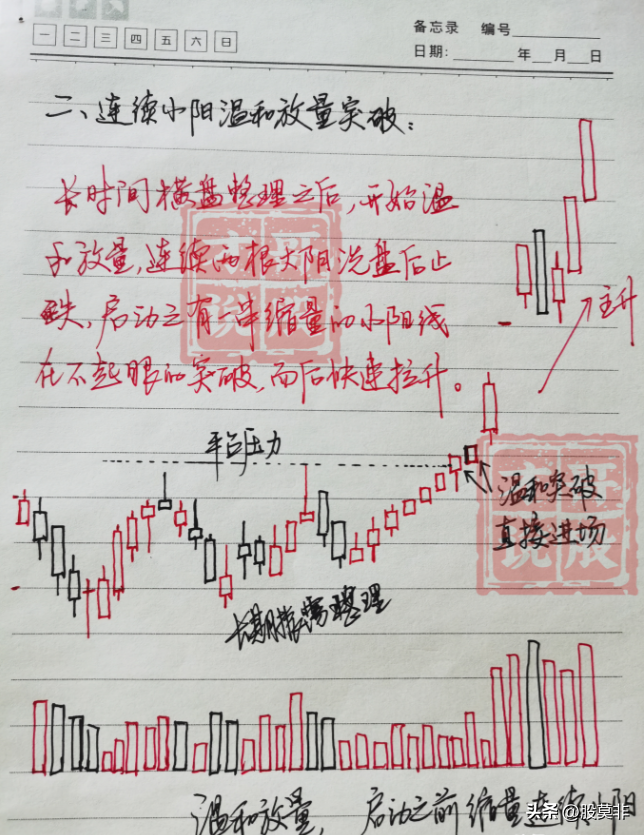 备忘录 编号
一 二 三 四 五 六 日
日期: 年 月 日
二、连续小阳温和放量突破：
长时间横盘整理之后，开始温
和放量，连续两根大阴洗盘后止
跌，启动之有一串缩量的小阳线
在不起眼的突破，而后快速拉升。
主升
平台压力
温和突破
直接进场
长期横盘整理
温和放量， 启动之前缩量连续小阳
头条 @股莫非